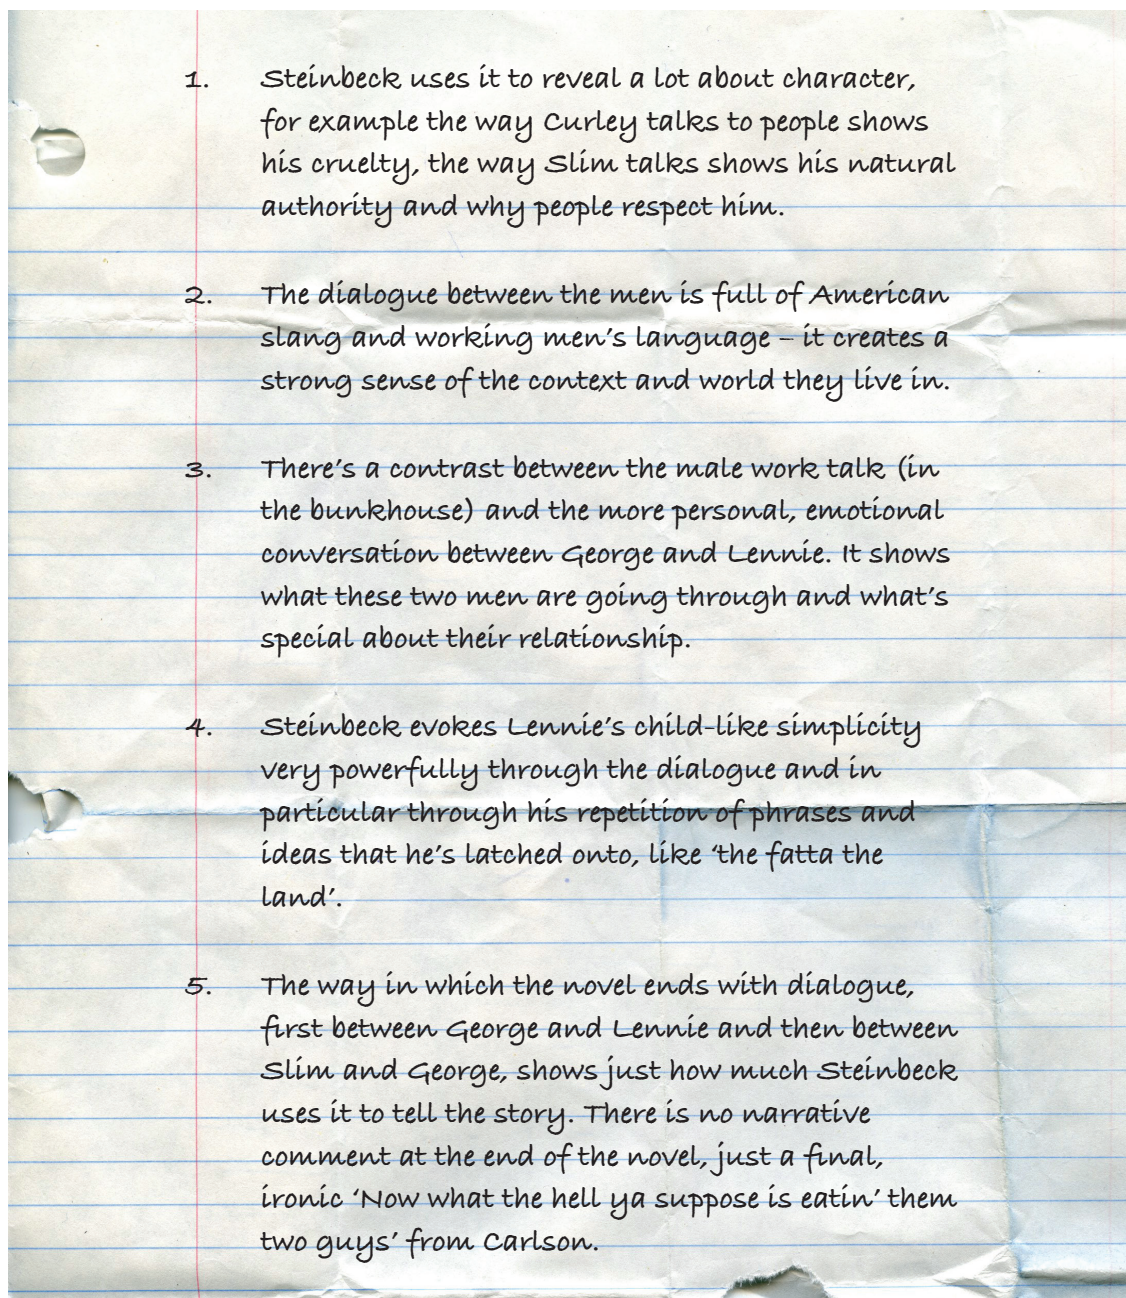 1. Steinbeck uses it to reveal a lot about character,
for example the way Curley talks to people shows
his cruelty, the way Slim talks shows his natural
authority and why people respect him.
2. The dialogue between the men is full of American
slang and working men's language – it creates a
strong sense of the context and world they live in.
3. There's a contrast between the male work talk (in
the bunkhouse) and the more personal, emotional
conversation between George and Lennie. It shows
what these two men are going through and what's
special about their relationship.
4. Steinbeck evokes Lennie's child-like simplicity
very powerfully through the dialogue and in
particular through his repetition of phrases and
ideas that he's latched onto, like 'the fatta the
land'.
5. The way in which the novel ends with dialogue,
first between George and Lennie and then between
Slim and George, shows just how much Steinbeck
uses it to tell the story. There is no narrative
comment at the end of the novel, just a final,
ironic 'Now what the hell ya suppose is eatin' them
two guys' from Carlson.